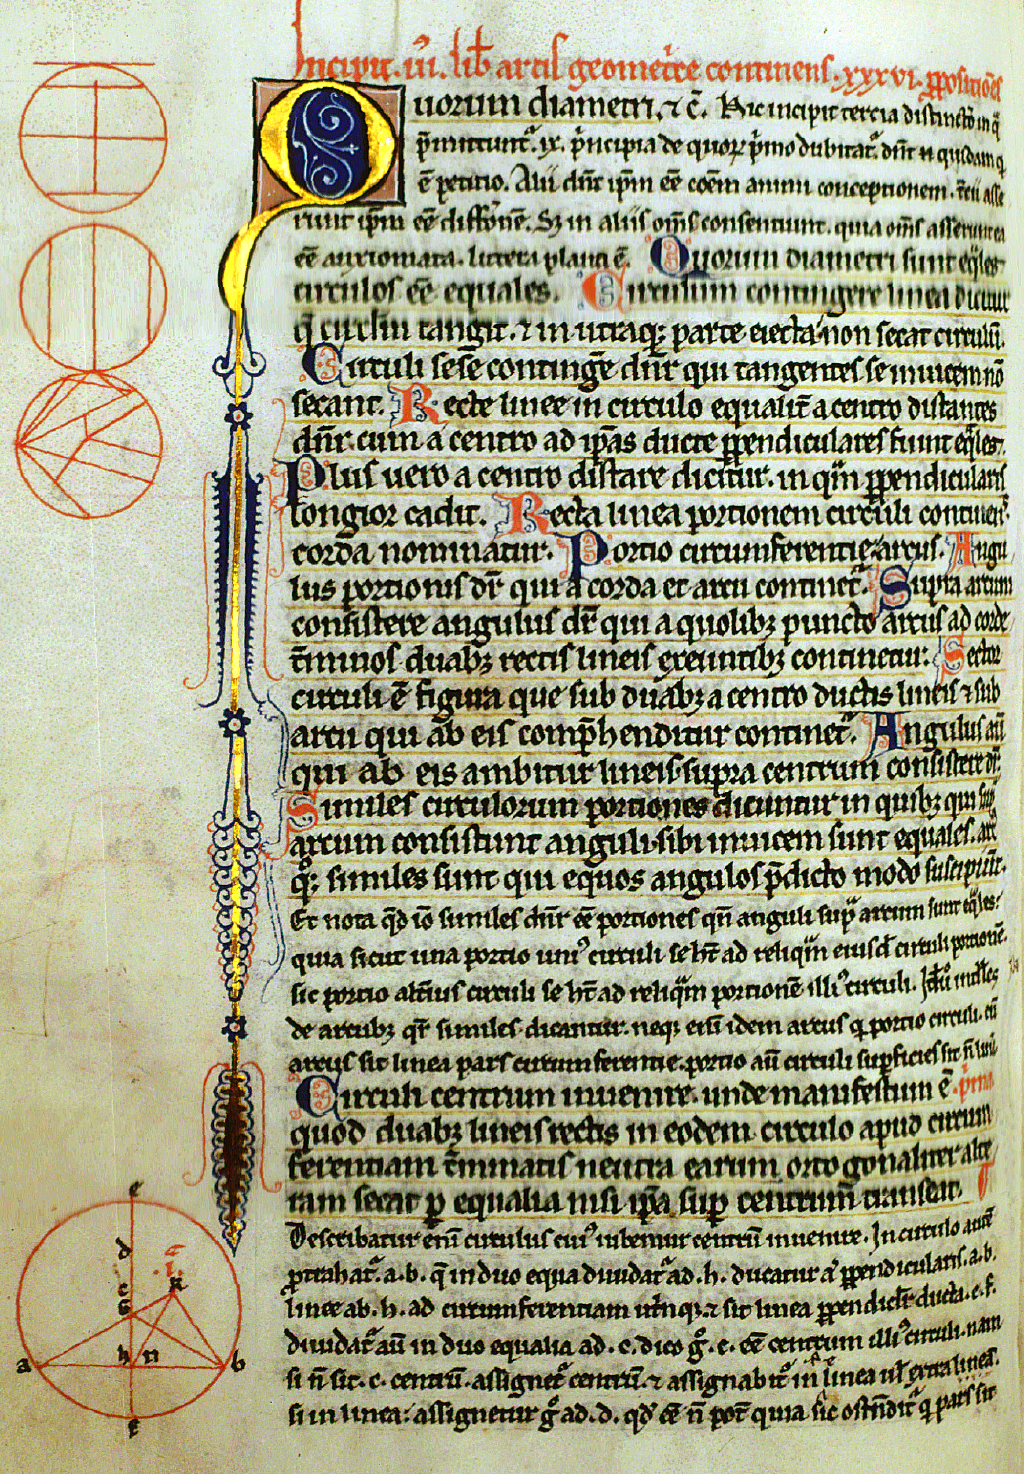 Incipit .iii. lib̄ artis geometⁱce continens .xxxvi. ꝓpositōes
Quorum diametri, ⁊ c̄. Hic incipit tercia distinctō in q̄
p̄mittuntᷣ .ix. pⁱncipia de quoꝝ pⁱmo dubitatᷣ. dn̄t .n. quidam q
ē petitio. Alii dn̄t ip̄m eē cōem animi conceptionem. t̄cii asse
runt ip̄m eē diffōnē. Sꝫ in aliis om̄s consentiunt. quia om̄s asserunt ea
eē auxiomata. littera plana ē. Quorum diametri sunt eq̄les
circulos eē equales. Circulum contingere linea dicitur
q̄ circlm̄ tangit. ⁊ in utraqꝫ parte eiecta non secat circulū.
Circuli sese continge̅ dn̄r qui tangentes se inuicem nō
secant. Recte linee in circulo equalit̄ a centro distantes
dn̄r. cum a centro ad ip̄as ducte ꝑpendiculares fiunt eq̄les.
Plus uero a centro distare dicitur. in qᷓm ꝑpendicularis
longior cadit. Recta linea portionem circuli continens
corda nominatur. Portio circumferentie: arcus. Angu
lus portionis dr̄ qui a corda et arcu continetᷣ. Supra arcum
consistere angulus dr̄ qui a quolibꝫ puncto arcus ad corde
t̄minos duabꝫ rectis lineis exeuntibꝫ continetur. Sector
circuli ē figura que sub duabꝫ a centro ductis lineis ⁊ sub
arcu qui ab eis comp̄henditur continetᷣ. Angulus aū
qui ab eis ambitur lineis. supra centrum consistere dr̄.
Similes circulorum portiones dicuntur in quibꝫ qui sup̄
arcum consistunt anguli. sibi inuicem sunt equales. arc
qͦqꝫ similes sunt qui equos angulos p̄dicto modo suscipiūt.
Et nota qd̄ iō similes dn̄r eē portiones qn̄ anguli supᷓ arcum sunt eq̄les.
quia sicut una portio uniꝰ circuli se ht̄ ad reliqᷓm eiusd̄ circuli portionē.
sic portio alt̄ius circuli se ht̄ ad reliqᷓm portionē illiꝰ circuli. intⁱlles
de arcubꝫ qr̄ similes dicantur. neqꝫ eni̅ idem arcus q̄ portio circuli. cū
arcus sit linea pars circumferentie. portio aū circuli suꝑficies sit
Circuli centrum inuenire. unde manifestum ē pⁱma
quod duabꝫ lineis rectis in eodem circulo apud circum
ferentiam t̄minatis neutra earum ortogonaliter alte
ram secat ꝑ equalia nisi ip̄a suꝑ centrum transeat.
Describatur eni̅ circulus cuiꝰ iubemur centrū inuenire. In circulo autē
ptrahatᷣ .a.b. q̄ in duo equa diuidatᷣ ad .h. ducatur qᷓ ꝑpendicularis .a.b.
linee ab .h. ad circumferentiam utⁱnqꝫ ⁊ sit linea ꝑpendiclr̄ ducta .e.f.
diuidatᷣ aū in duo equalia ad .c. dico gͦ .c. eē centrum illiꝰ circuli. nam
si n̄ sit .c. centrū. assignetᷣ centrū. ⁊ assignabitᷣ in linea ul̄ extra linea.
si in linea: assignetur gͦ ad .d. qd̄ eē n̄ pot̄ quia sic ostn̄ditᷣ q̄ pars sit
e
d
c
g
k
a
h
n
b
f